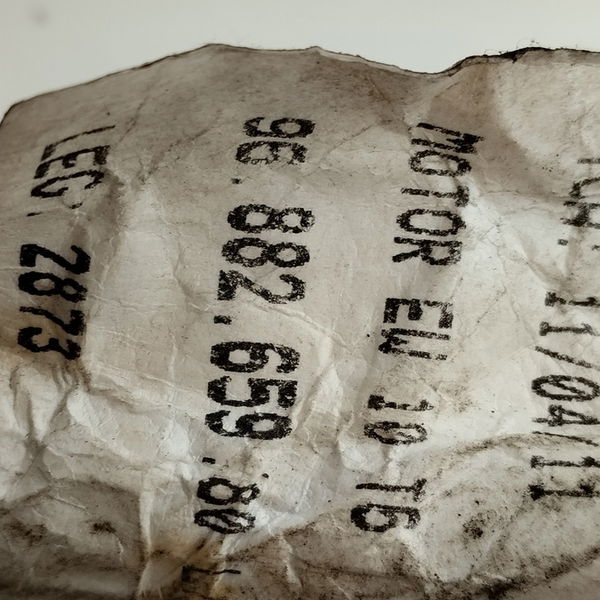 11/04/11
MOTOR EW 10 T6
96.882.659.80
LEG. 2873